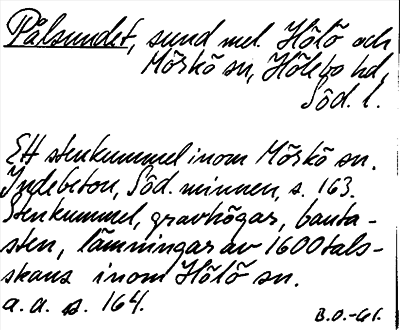 Pålsundet, sund mel. Hölö och
Mörkö sn, Hölebo hd,
Söd. l.
Ett stenkummel inom Mörkö sn.
Indebetou, Söd. minnen, s. 163.
Stenkummel, gravhögar, bauta-
sten, lämningar av 1600tals-
skans inom Hölö sn.
a. a. s. 164.
B.O.-61.